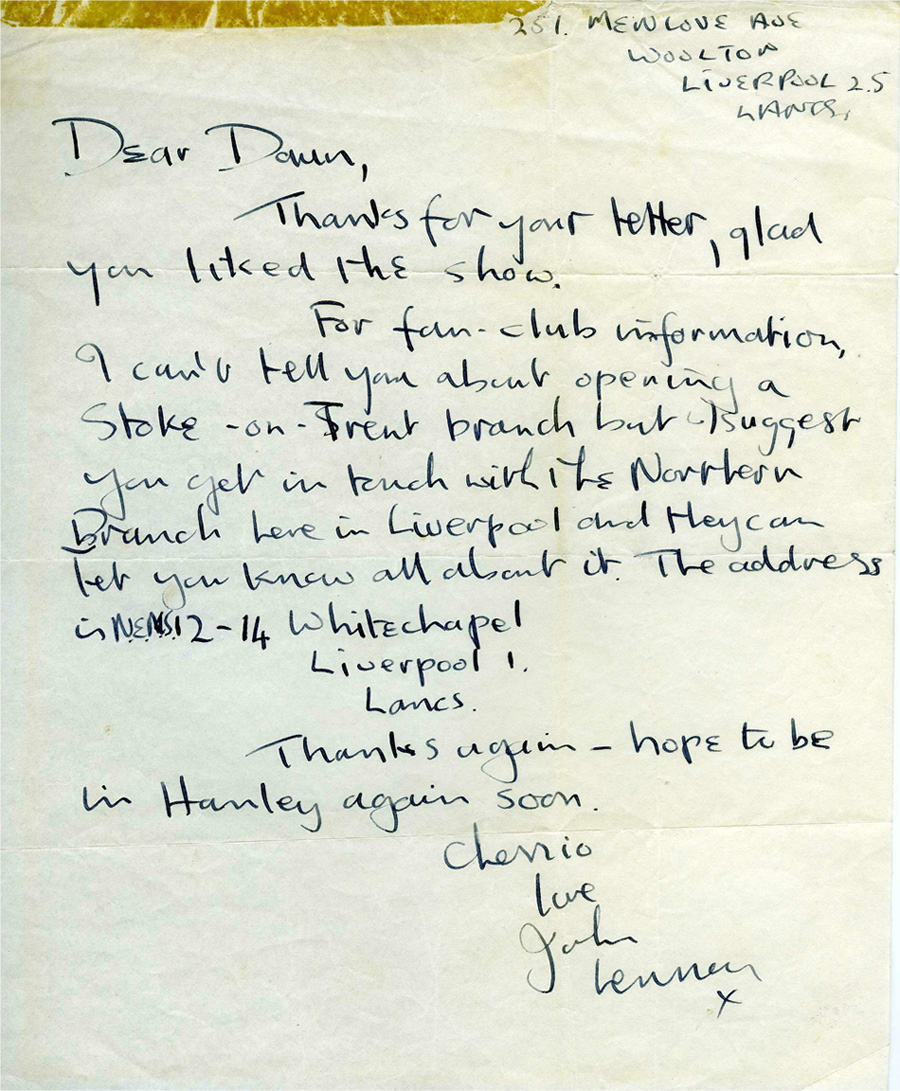 251. MENLOVE AVE
WOOLTON
LIVERPOOL 25
LANCS,
Dear Dawn,
Thanks for your letter, glad
you liked the show.
For fan-club information,
I can't tell you about opening a
Stoke-on-Trent branch but I suggest
you get in touch with the Northern
Branch here in Liverpool and they can
let you know all about it. The address
is N.E.M.S. 12-14 Whitechapel
Liverpool 1.
Lancs.
Thanks again - hope to be
in Hanley again soon.
Cherrio
love
John
Lennon
x